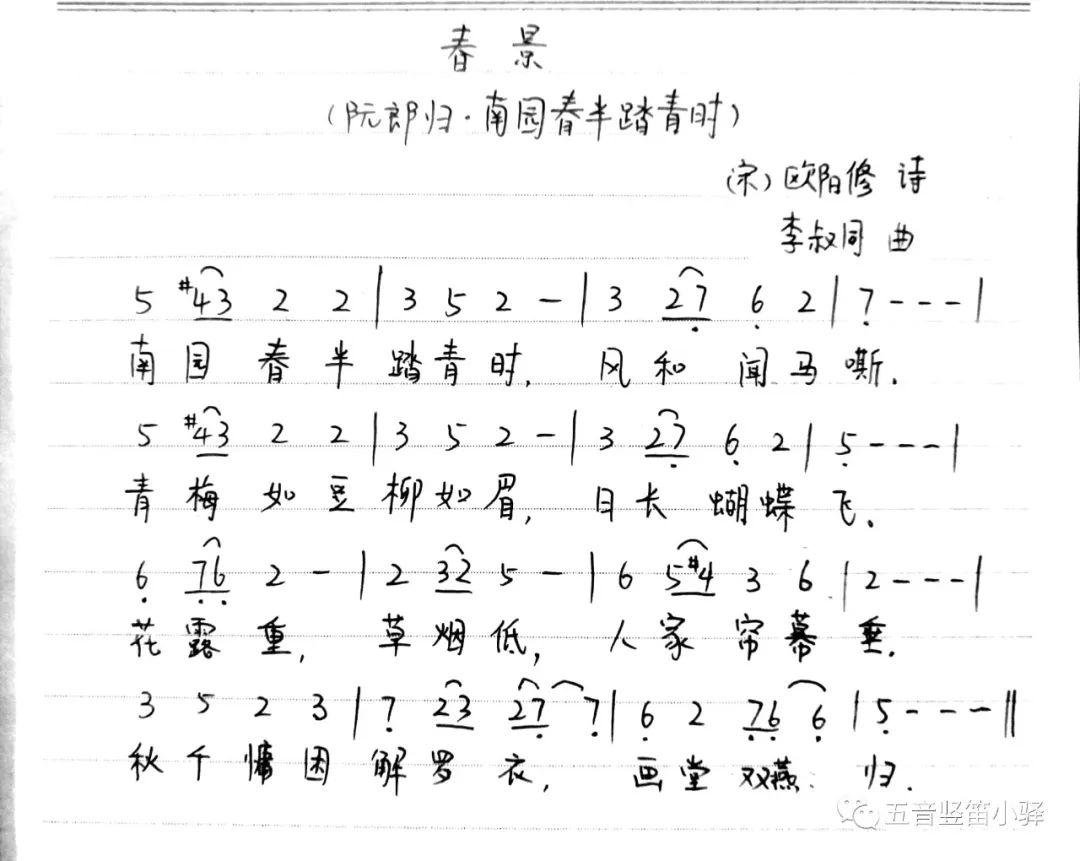 春景
（阮郎归·南园春半踏青时）
（宋）欧阳修 诗
李叔同 曲
5 #43 2 2 | 3 5 2 – | 3 27̣ 6̣ 2 | 7̣ - - - |
南园春半踏青时，风和闻马嘶．
5 #43 2 2 | 3 5 2 – | 3 27̣ 6̣ 2 | 5̣ - - - |
青梅如豆柳如眉，日长蝴蝶飞．
6̣ 7̣6̣ 2 – | 2 32 5 – | 6 5#4 3 6 | 2 - - - |
花露重，草烟低，人家帘幕垂．
3 5 2 3 | 7̣ 23 27̣ 7̣ | 6̣ 2 7̣6̣ 6̣ | 5̣ - - - ||
秋千慵困解罗衣，画堂双燕归．
五音竖笛小驿